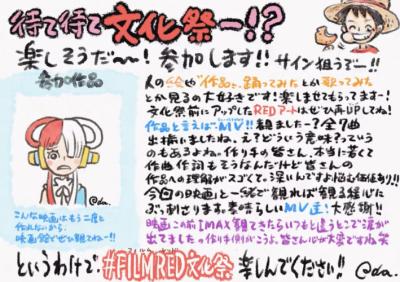 待て待て文化祭ー!?
楽しそうだ〜〜!参加します!!サイン狙うぞー!!
参加作品
@da.
こんな映画はもう二度と
作れないから、
映画館でぜひ観てねー!!
人の絵や作品を、踊ってみたとか歌ってみた
とか見るの大好きです!楽しませてもらってますー!
文化祭前にアップしたREDアートはぜひ再UPしてね!
作品と言えばMV!!観ました?全7曲
出揃いましたね。えぞどういう意味?っていう
のもあるよね。作り手の皆さん、本当に若くて
曲も作詞もそうなんだけど皆さんの
作品への理解がスゴくて。深いんですよ悩む価値有り!!
今回の映画と一緒で観れば観る程心に
ぶっ刺さります。素晴らしいMV達!大感謝!!
映画この前IMAX観てきたらいつもと違うとこで涙が
出てました。作り手側がこうよ、皆さん心が大変ですね笑
というわけで、#FILMRED文化祭 楽しんでください!! @da.